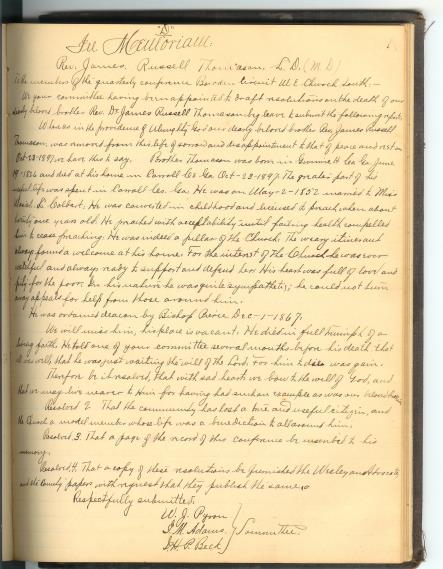 "D"
In Memoriam:
Rev. James Russell Thomason L.D. (M.D)
To the members of the quarterly conference Bowdon Circuit M.E. Church South:—
We your committee having been appointed to draft resolutions on the death of our
dearly beloved brother Rev. Dr James Russell Thomason beg leave to submit the following report.
Whereas in the providence of Almighty God our dearly beloved brother Rev. James Russell
Thomason, was removed from this life of sorrow and disappointment to that of peace and rest on
Oct-23-1897 we have this to say. Brother Thomason was born in Gwinnett Co Ga June
1826 and died at his home in Carroll Co Ga Oct-23-1897. The greater part of his
useful life was spent in Carroll Co. Ga. He was on May-2-1852 married to Miss
Sarah L. Colbert. He was converted in childhood and licensed to preach when about
twenty one years old. He preached with acceptability until failing health compelled
him to cease preaching. He was indeed a pillar of the Church. The weary itinerant
always found a welcome at his home. For the interest of the Church he was ever
watchful and always ready to support and defend her. His heart was full of love and
pity for the poor. In his nature he was quite sympathetic; he could not turn
away appeals for help from those around him.
He was ordained deacon by Bishop Pierce Dec-1-1867.
We will miss him, his place is vacant. He died in full triumph of a
living faith. He told one of your committee several months before his death that
all was well, that he was just waiting the will of the Lord. For him to die was gain.
Therefore be it resolved, that with sad hearts we bow to the will of God, and
that we may live nearer to Him for having had such an example as was our beloved
Resolved 2. That the community has lost a true and useful citizen, and
the Church a model member whose life was a benediction to all around him.
Resolved 3. That a page of the record of this conference be inscribed to his
memory.
Resolved 4. That a copy of these resolutions be furnished the Wesleyan Advocate
and the County papers, with request that they publish the same.
Respectfully submitted.
W. J. Pyron
J. M. Adams Committee.
J. H. P. Beck